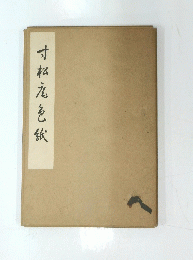 寸松庵色紙